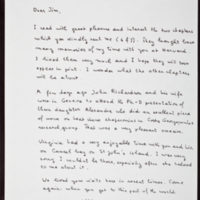 Dear Jim,
I read with great pleasure and interest the two chapters
which you kindly sent me (4 & 5). They brought back
many memories of my time with you at Harvard.
I liked them very much and I hope they will soon
appear in print. I wonder what the other chapters
will be about.
A few days ago John Richardson and his wife
were in Geneva to attend the Ph-D presentation of
their daughter Alexandra who did an excellent piece
of work on heat shock chaperones in Costa Georgopoulos
research group. That was a very pleasant occasion.
Virginia had a very enjoyable time with you and Liz
on Cannel bay on St John's island. I was very
sorry I couldn't be there, especially after she talked
to me about it.
We missed your visits here in recent times. Come
again when you get to this part of the world.